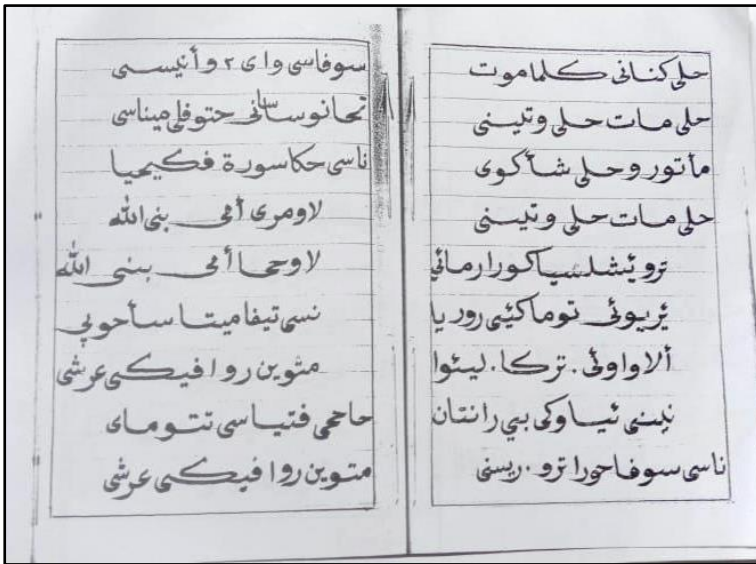 حلى كنانى كلماموت
حلى مات حلى وتينى
مأتور وحلى شأكوى
حلى مات حلى وتينى
ترو يئشلسياكورارمائى
يريوئى توماكيئى روريا
ألاواوئى . تركا . ليئوا
نينى ئياوكى بي رانتان
ناسى سوفاحورا ترو . ريسنى
سوفاسى واى ٢ وأنيسى
تحانوسانى حتوفلى ميناسى
ناسى حكاسورة فكيحيا
لاومرى أمى بنى الله
لاوحما أمى بنى الله
نسى تيفاميتا سأحوبي
متوين روا فيكى عرشى
حاحمى فتياسى تتوماى
متوين روا فيكى عرشى